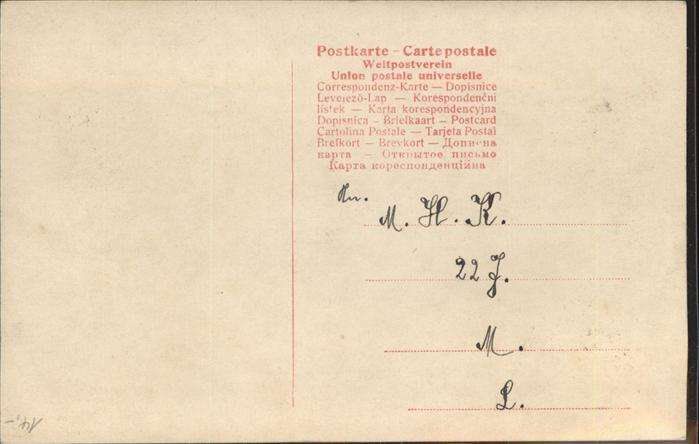 Postkarte – Carte postale
Weltpostverein
Union postale universelle
Correspondenz-Karte — Dopisnice
Levelező-Lap — Korespondenční
lístek — Karta korespondencyjna
Dopisnica – Briefkaart – Postcard
Cartolina Postale — Tarjeta Postal
Brefkort — Brevkort — Дописна
карта — Открытое письмо
Карта кореспонденційна
M. H. K.
22 J.
M.
L.